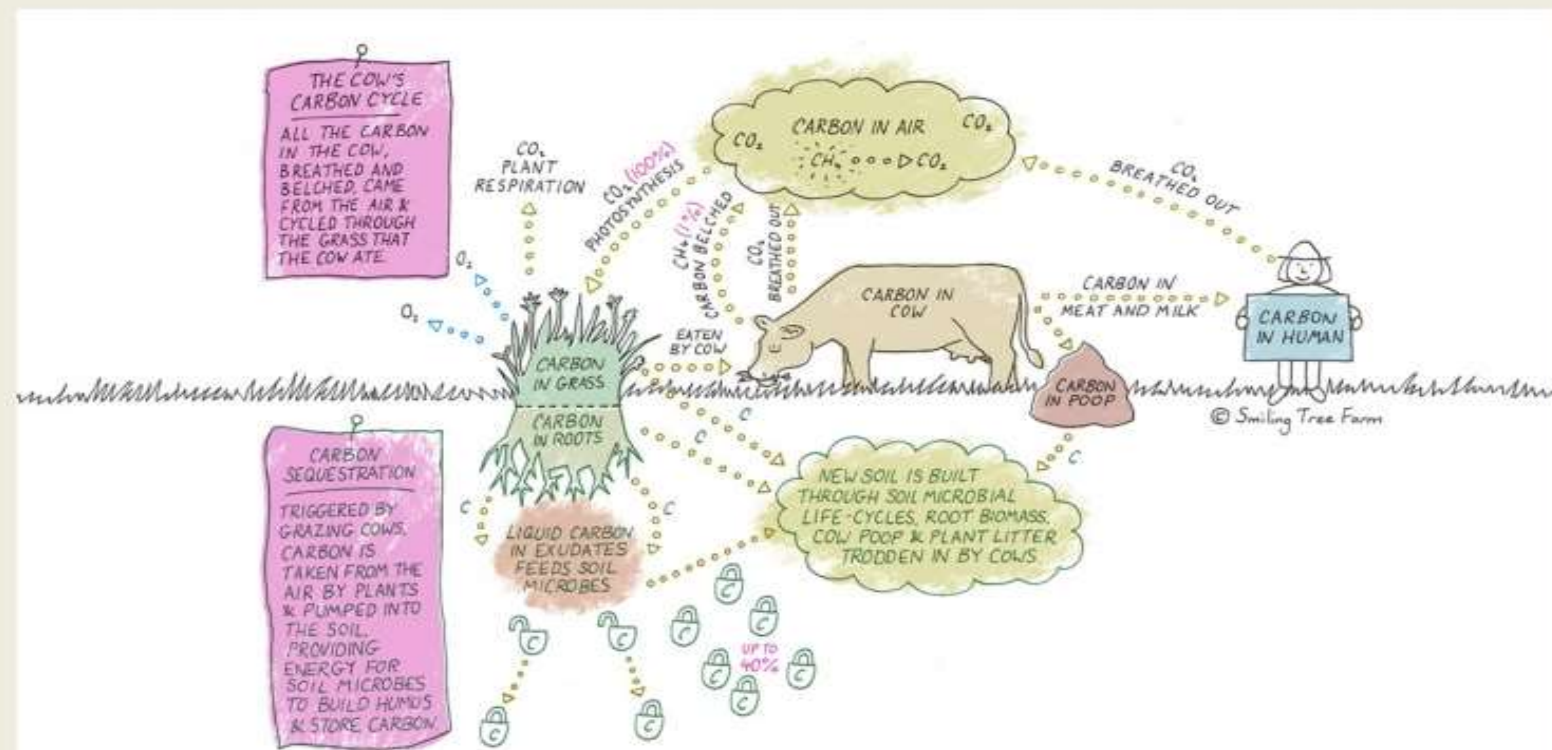 THE COW'S
CARBON CYCLE
ALL THE CARBON
IN THE COW,
BREATHED AND
BELCHED, CAME
FROM THE AIR &
CYCLED THROUGH
THE GRASS THAT
THE COW ATE.
CO₂
PLANT
RESPIRATION
O₂
O₂
CO₂ (100%)
PHOTOSYNTHESIS
CH₄ (1%)
CARBON BELCHED
CO₂
BREATHED OUT
CO₂ CARBON IN AIR CO₂
CH₄ CO₂
CO₂
BREATHED OUT
CARBON IN
COW
EATEN
BY COW
CARBON IN
MEAT AND MILK
CARBON
IN HUMAN
CARBON
IN GRASS
CARBON
IN ROOTS
CARBON
IN POOP
© Smiling Tree Farm
CARBON
SEQUESTRATION
TRIGGERED BY
GRAZING COWS.
CARBON IS
TAKEN FROM THE
AIR BY PLANTS
& PUMPED INTO
THE SOIL,
PROVIDING
ENERGY FOR
SOIL MICROBES
TO BUILD HUMUS
& STORE CARBON.
C
C
C
C
C
LIQUID CARBON
IN EXUDATES
FEEDS SOIL
MICROBES
NEW SOIL IS BUILT
THROUGH SOIL MICROBIAL
LIFE-CYCLES, ROOT BIOMASS,
COW POOP & PLANT LITTER
TRODDEN IN BY COWS
C
C
C
C
C
C
C
C
C
C
UP TO
40%